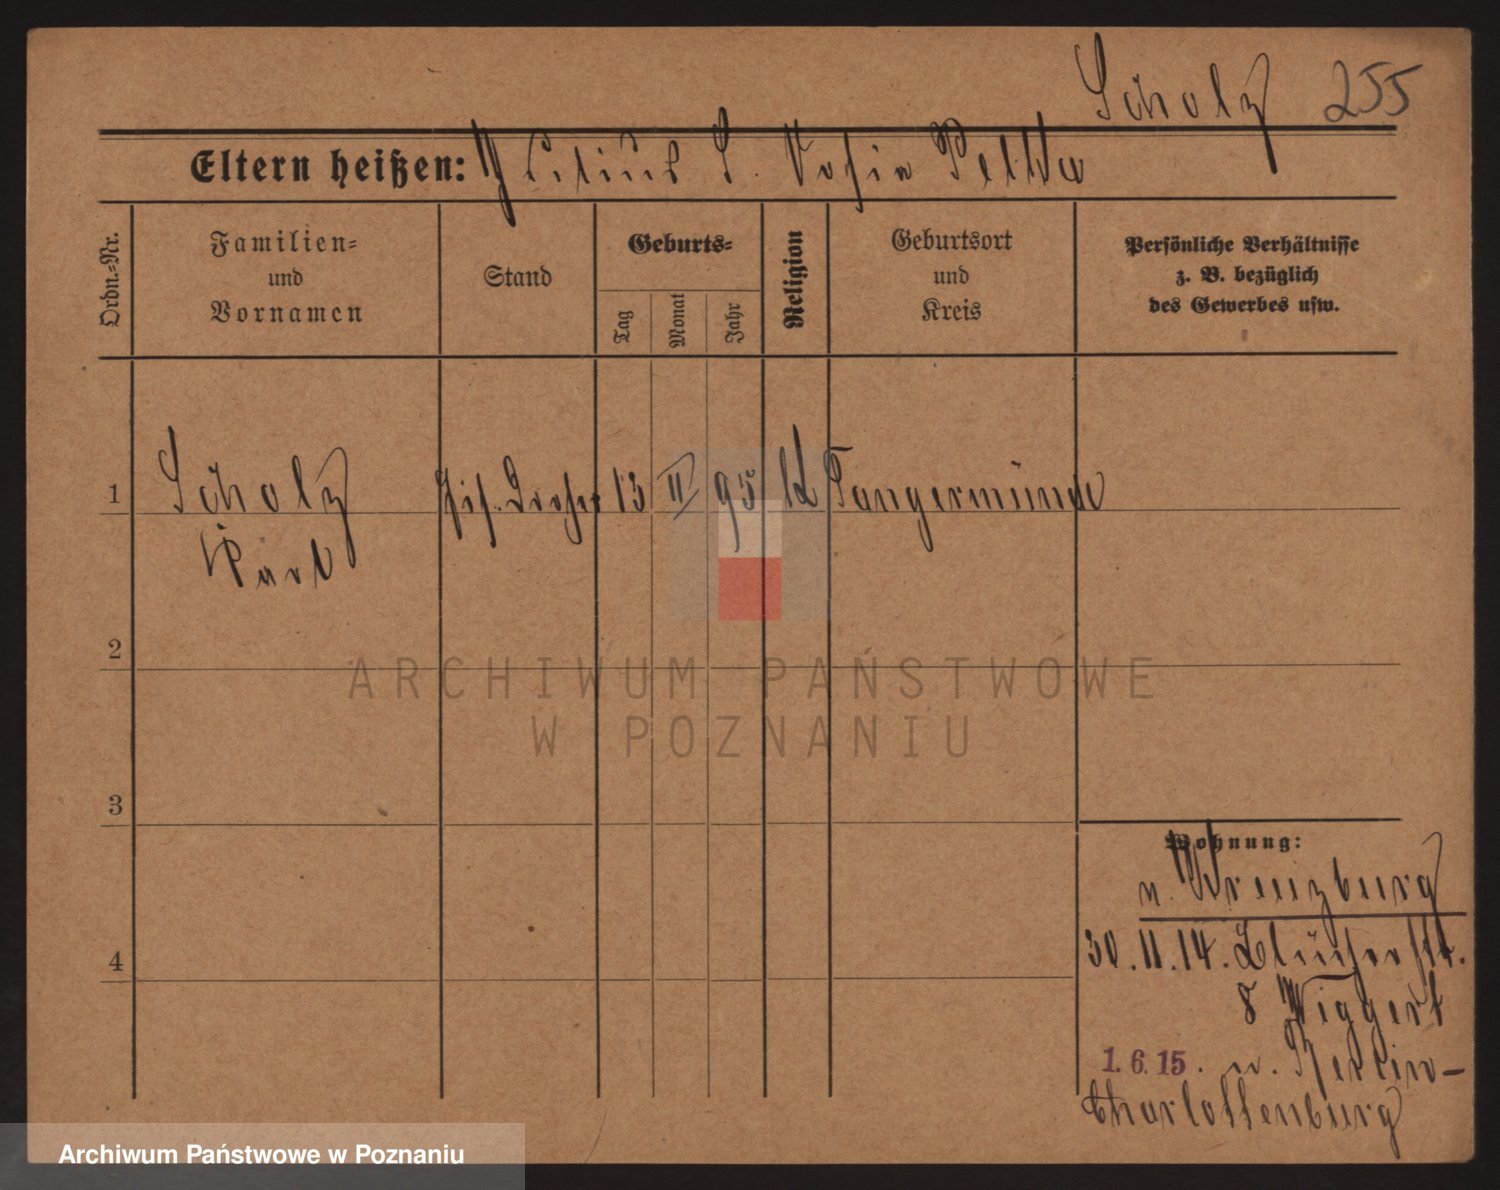 Scholz 255
Eltern heißen: Julius S. Sofie
Ordn.-Nr.
Familien-
und
Vornamen
Stand
Geburts-
Tag
Monat
Jahr
Religion
Geburtsort
und
Kreis
Persönliche Verhältnisse
z. B. bezüglich
des Gewerbes usw.
1 Scholz 13 II 95 Tangermünde
Karl
2
3
4
Wohnung:
n. Kreuzburg
30.11.14. Blücherstr.
8 Wiggert
1.6.15. n. Berlin-
Charlottenburg
ARCHIWUM PAŃSTWOWE
W POZNANIU
Archiwum Państwowe w Poznaniu